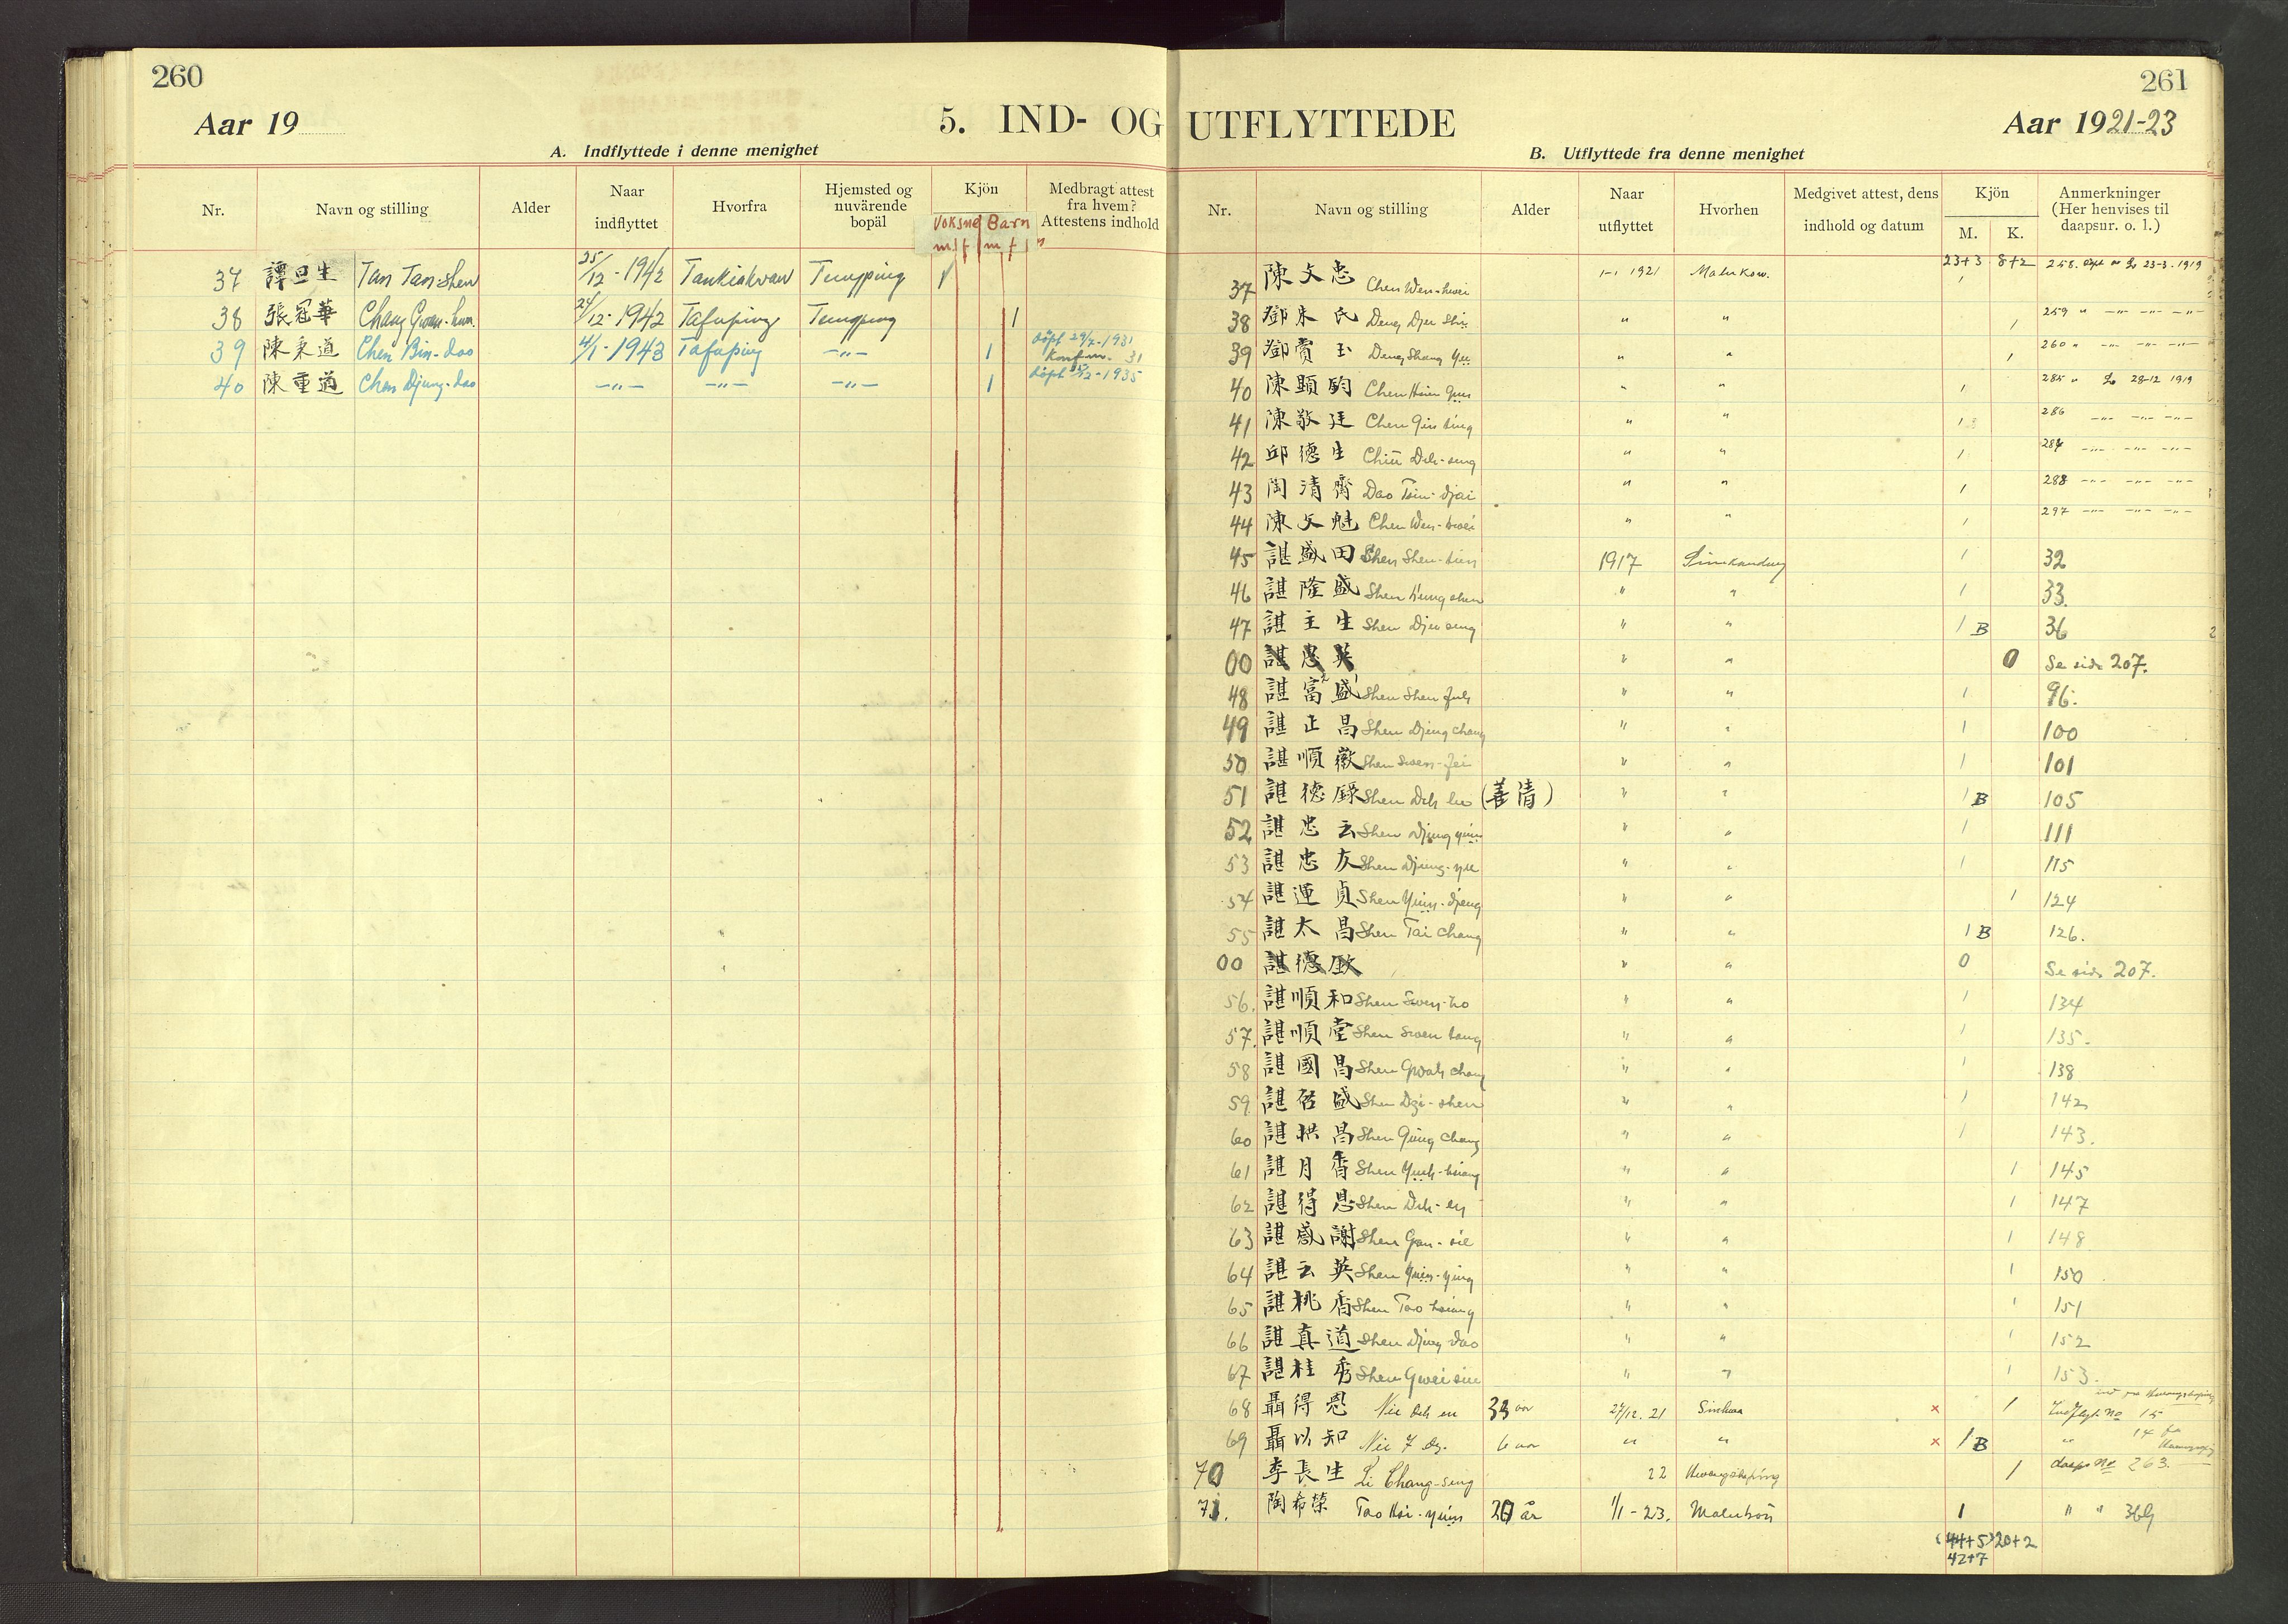 260
Aar 19
5. IND- OG
A. Indflyttede i denne menighet
Nr. Navn og stilling Alder Naar indflyttet Hvorfra Hjemsted og nuværende bopäl Kjön Medbragt attest fra hvem? Attestens indhold
Voksne Barn
m. f m f
37 譚旦生 Tan Tan-shen 25/12-1942 Tankiakwan Tungping 1
38 張冠華 Chang Gwan-hwa 24/12-1942 Tafuping Tungping 1
39 陳秉道 Chen Bin-dao 4/1-1943 Tafuping —"— 1 döpt 29/2-1931 Konfm. 31
40 陳重道 Chen Djung-dao —"— —"— —"— 1 döpt 25/12-1935
261
UTFLYTTEDE
Aar 1921-23
B. Utflyttede fra denne menighet
Nr. Navn og stilling Alder Naar utflyttet Hvorhen Medgivet attest, dens indhold og datum Kjön Anmerkninger (Her henvises til daapsnr. o. l.)
M. K.
23+3 8+2
37 陳文忠 Chen Wen-hwei 1-1 1921 Malukow. 1 258. 23-3-1919
38 鄧朱氏 Deng Dju Shi " " 1 259 " —"— —"— —"—
39 鄧賞玉 Deng Shang Yü " " 1 260 " —"— —"—
40 陳顕鈞 Chen Hsien Gün " " 1 285 " 28-12 1919
41 陳敬廷 Chen Gin ting " " 1 286 —"— —"— —"—
42 邱德生 Chiü Deh-seng " " 1 287 —"— —"— —"—
43 陶清齋 Dao Tsin-djai " " 1 288 —"— —"— —"—
44 陳文魁 Chen Wen-kwei " " 1 297 —"— —"— —"—
45 諶盛田 Shen Shen-tien 1917 1 32
46 諶隆盛 Shen Lung shen " " 1 33.
47 諶主生 Shen Dju seng " " 1 B 36
00 諶忠英 " " 0 Se side 207.
48 諶富盛 Shen Shen fuh " " 1 96.
49 諶正昌 Shen Djeng chang " " 1 100
50 諶順徽 Shen Swen-fei " " 1 101
51 諶德録 Shen Deh lu (善清) " " 1 B 105
52 諶忠云 Shen Djung yün " " 1 111
53 諶忠友 Shen Djung-yu " " 1 115
54 諶運貞 Shen Yün-djeng " " 1 124
55 諶太昌 Shen Tai chang " " 1 B 126.
00 諶德 " " 0 Se side 207.
56. 諶順和 Shen Swen-ho " " 1 134
57. 諶順堂 Shen Swen tang " " 1 135.
58 諶國昌 Shen Gwoh chang " " 1 138
59 諶啓盛 Shen Dzi-shen " " 1 142
60 諶拱昌 Shen Gung chang " " 1 143.
61 諶月香 Shen Yüeh-hsiang " " 1 145
62 諶得恩 Shen Deh-en " " 1 147
63 諶感謝 Shen Gan-sie " " 1 148
64 諶云英 Shen Yün-ying " " 1 150
65 諶桃香 Shen Tao hsiang " " 1 151
66 諶真道 Shen Djen dao " " 1 152
67 諶桂秀 Shen Gwei siu " " 1 153.
68 聶得恩 Nie deh en 33 aar 27/12. 21 Sinhwa × 1 Indflyt No 15
69 聶以知 Nie 6 aar " " × 1 B " 14
70 李長生 Li Chang-seng 22 Hwangshaping 1 daaps No 263.
71. 陶希榮 Tao Hsi-yuin 20 år 1/1-23. Malukow 1 " " 369
(44+5) 20+2
42+7